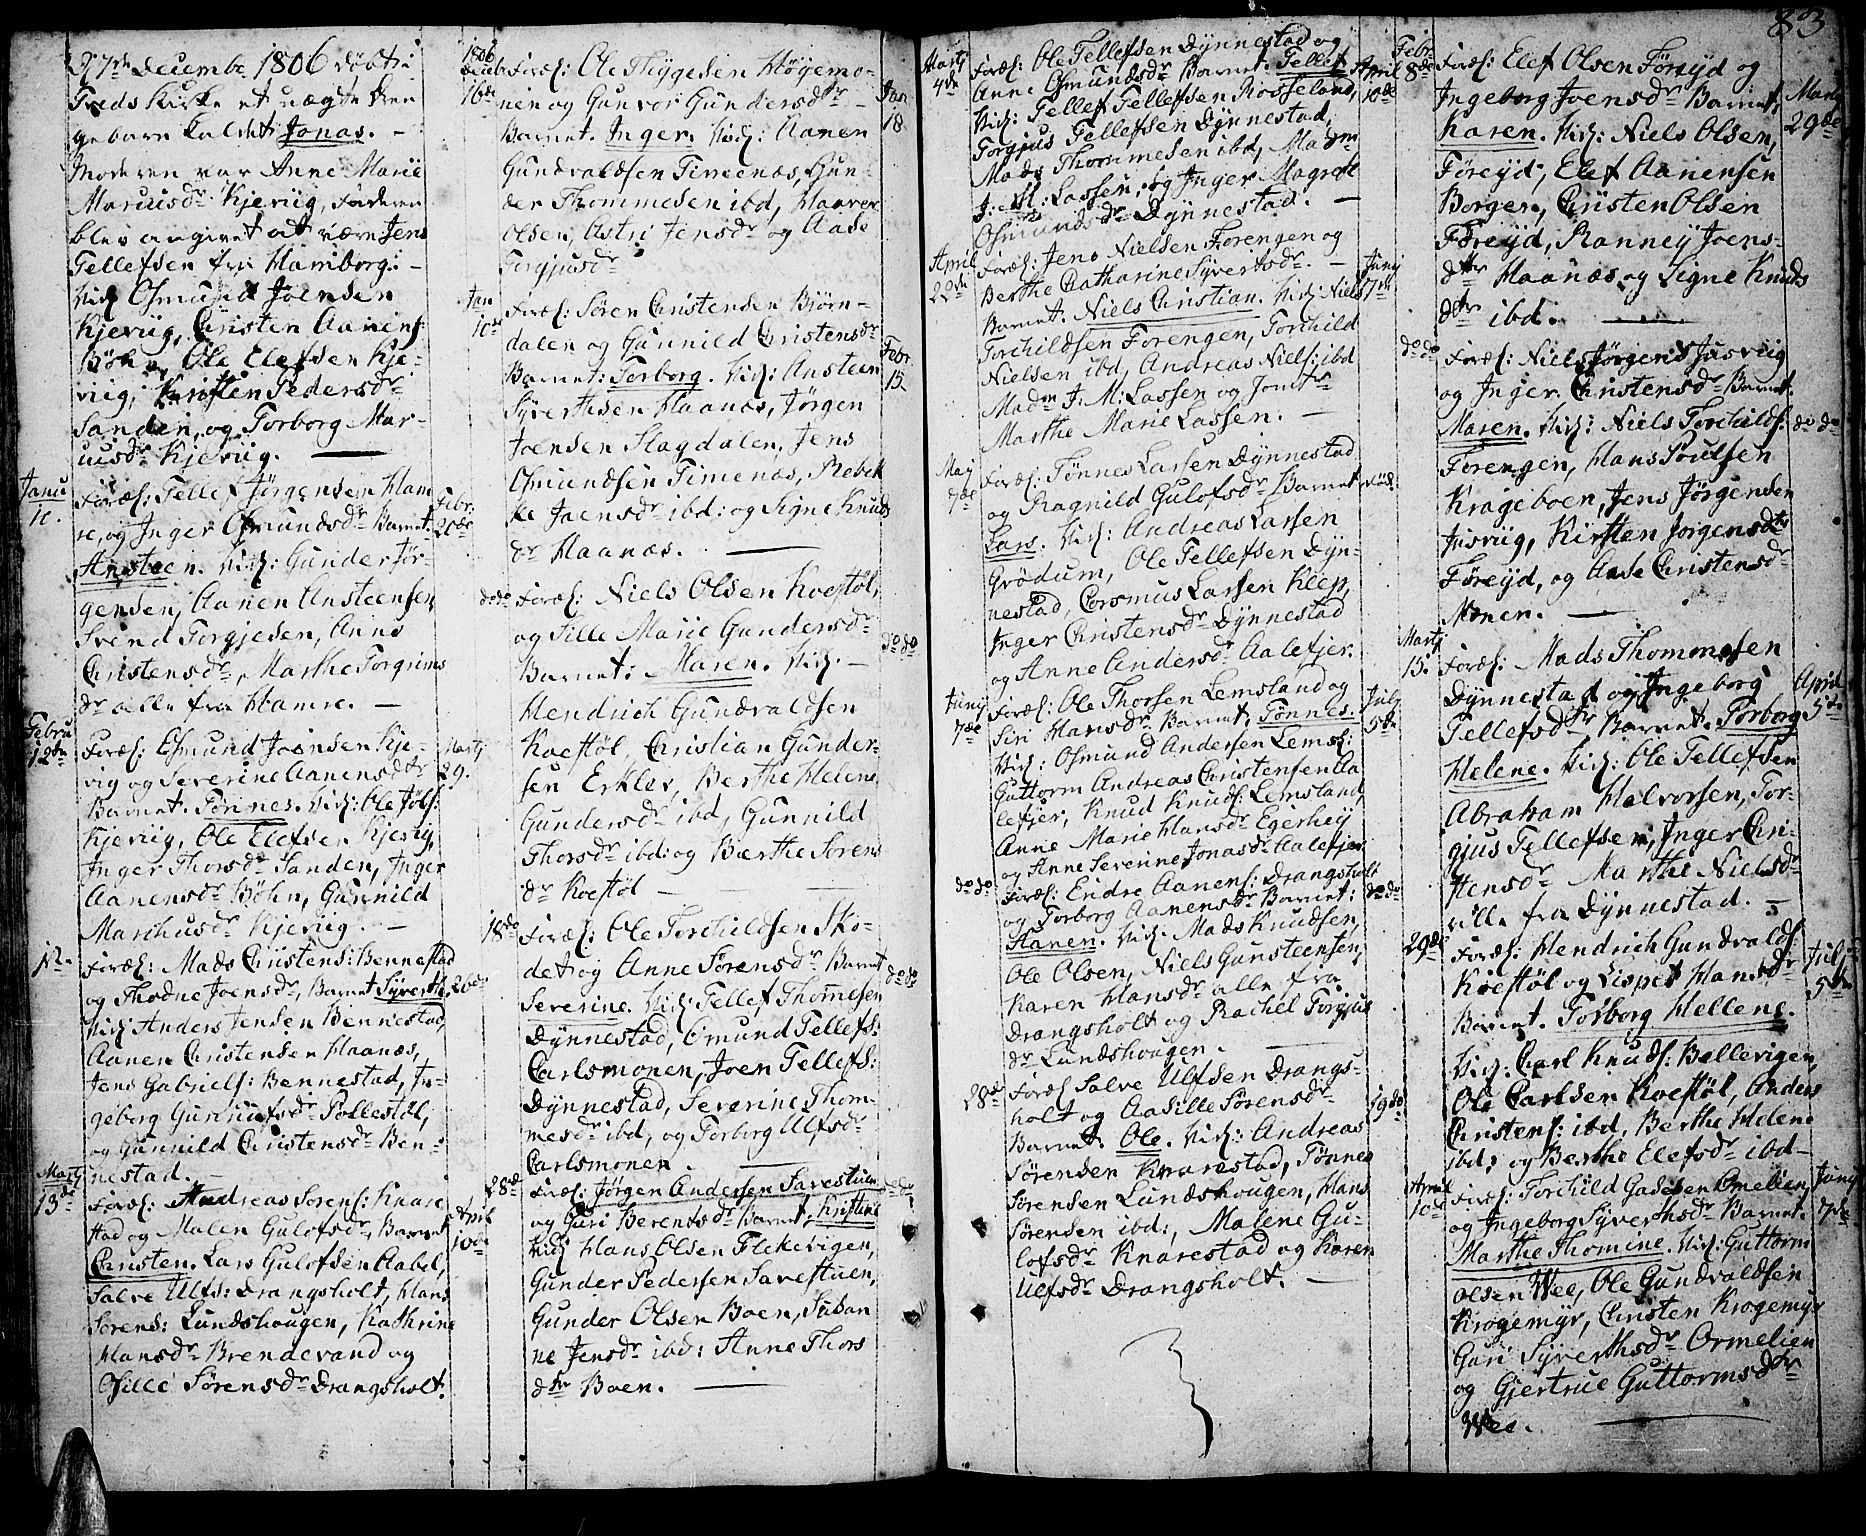 83
27de Decembr 1806 døbt i
Treds Kirke et uægte dren
ge barn kaldet Jonas. -
Moderen var Anne Marie
Marcusdr Kjeviig, Faderen
blev angivet at være Jens
Tellefsen fra Hamborg: -
Vid: Osmund Joensen
Kjeviig, Christen Aanens:
Bøhn, Ole Elefsen Kje-
viig, Kirsten Pedersdr
Sanden, og Torborg Mar-
cusdr Kjeviig.
Janu
1c.
Foræl: Tellef Jørgensen Ham
re, og Inger Osmundsdr Barnet.
Ansteen. Vid: Gunder Jør-
gensen, Aanen Ansteensen,
Svend Torgjesen, Anne
Christensdr, Marthe Torgrims
dr alle fra Hamre. -
Febr.
20de
Febru
12te
Foræl: Osmund Joensen Kje-
vig og Severine Aanensdtr
Barnet. Tønnes. Vid: Ole Jøls:
Kjeviig, Ole Elefsen Kjeviig,
Inger Thorsdr Sanden, Inger
Aanensdr Bøhn, Gunnild
Marchusdr Kjeviig. -
Martj
29.
Foræl: Mads Christens: Bennestad
og Thodne Joensdr, Barnet Syverth.
Vid: Anders Jensen Bennestad,
Aanen Christensen Haanæs,
Jens Gabriels: Bennestad, In-
geborg Gunnufsdr Pollestøl,
og Gunnild Christensdr Ben-
nestad. -
26de
Martj
13de
Foræl: Andreas Sørens: Knare
stad og Malen Gulofsdr, Barnet
Christen. Lars Gulofsen Aabel,
Salve Ulfs: Drangsholt, Hans
Sørens: Lundshougen, Kathrine
Hansdr Brendevand og
Osille Sørensdr Drangsholt.
April
10de
1806
Decbr
16de
Foræl: Ole Thygesen Høyemo-
nen og Gunvor Gundersdtr -
Barnet. Inger. Vid: Aanen
Gundvaldsen Timenæs, Gun-
der Thommesen ibd, Haaver
Olsen, Astri Jensdr og Aase
Torgjusdr
Jan
18
Jan
10de
Foræl: Søren Christensen Bjørn-
dalen og Gunnild Christensdr
Barnet: Torborg. Vid: Ansteen
Syverthsen Haanæs, Jørgen
Joensen Slagdalen, Jens
Osmundsen Timenæs, Rebek
ke Joensdr ibd: og Signe Knuds
dr Haanæs.
Febr
15
dodo
Foræl: Niels Olsen Koestøl,
og Sille Marie Gundersdr
Barnet: Maren. Vid. -
Hendrich Gundvaldsen
Koestøl, Christian Gunder-
sen Erklev, Berthe Helene
Gundersdr ibd, Gunnild
Thorsdr ibd: og Berthe Sørens
dr Koestøl
do do
18de
Foræl: Ole Torchildsen Sko-
det og Anne Sørensdr Barnet
Severine. Vid: Tellef Thomesen
Dynnestad, Omund Tellefs:
Carlsmonen, Joen Tellefs:
Dynnestad, Severine Thom-
mesdr ibd, og Torborg Ulfsdr
Carlsmonen.
do do
28de
Foræl: Jørgen Andersen Savestuen
og Guri Berentsdr Barnet. Kristine
Vid: Hans Olsen Flekevigen,
Gunder Pedersen Savestuen,
Gunder Olsen Boen, Susan
ne Jensdr ibd: Anne Thors
dtr Boen.
do do
Martj
4de
Foræl: Ole Tellefsen Dynnestad og
Anne Osmundsdr Barnet: Tellef
Vid: Tellef Tellefsen Rosseland,
Torgjus Tellefsen Dynnestad,
Mads Thommesen ibd, Madm
J: M: Lassen, og Inger Magrete
Osmundsdr Dynnestad. -
April
10de
April
22de
Foræl: Jens Nielsen Forengen og
Berthe Catharine Syvertsdr. -
Barnet. Niels Christian. Vid: Niels
Torchildsen Forengen, Torchild
Nielsen ibd, Andreas Niels: ibd
Madm J: M: Lassen og Jomfr
Marthe Marie Lassen. -
Junj
7de
Maj
7de
Foræl: Tønnes Larsen Dynnestad
og Ragnild Gulofsdr Barnet
Lars. Vid: Andreas Larsen
Grødum, Ole Tellefsen Dyn-
nestad, Corsmus Larsen Klep,
Inger Christensdr Dynnestad
og Anne Andersdr Aalefjer.
Junj
7de
Foræl: Ole Thorsen Lemsland og
Siri Hansdr Barnet, Tønnes.
Vid: Osmund Andersen Lemsl:
Guttorm Andreas Christensen Aa
lefjer, Knud Knuds: Lemsland,
Anne Marie Hansdr Egerhej
og Anne Severine Jonasdr Aalefjer
July
5te
do do
Foræl: Endre Aanens: Drangsholt
og Torborg Aanensdr Barnet:
Hanen. Vid. Mads Knudsen,
Ole Olsen, Niels Gunsteensen,
Karen Hansdr alle fra
Drangsholt og Rachel Torgjus
dr Lundshougen.
do do
28de
Foræl: Salve Ulfsen Drangs-
holt og Aasille Sørensdr
Barnet. Ole. Vid: Andreas
Sørensen Knarestad, Tønnes
Sørensen Lundshougen, Hans
Sørensen ibd:, Malene Gu-
lofsdr Knarestad og Karen
Ulfsdr Drangsholt. -
19de
Febr.
8de
Foræl: Elef Olsen Føreyd og
Ingeborg Joensdr Barnet,
Karen. Vid: Niels Olsen,
Føreyd, Elef Aanensen
Borgen, Christen Olsen
Føreyd, Ranney Joens-
dtr Haanæs og Signe Knuds
dtr ibd.
Martj
29de
do do
Foræl: Niels Jørgens: Jusviig
og Inger Christensdr Barnet.
Maren. Vid: Niels Torchilds:
Forengen, Hans Poulsen
Krageboen, Jens Jørgensen
Jusviig, Kirsten Jørgensdtr
Føreyd, og Aase Christensdr
Monen.
do do
Martj
15.
Foræl: Mads Thommesen
Dynnestad og Ingeborg
Tellefsdtr, Barnet. Torborg
Helene. Vid: Ole Tellefsen
Abraham Halvorsen, Tor-
gjus Tellefsen, Inger Chri-
stensdr Marthe Nielsdr
alle fra Dynnestad. -
April
5te
29de
Foræl: Hendrich Gundvalds:
Koestøl og Lispet Hansdr
Barnet. Torborg Hellene.
Vid: Carl Knuds: Bellevigen,
Ole Carlsen Koestøl, Anders
Christens: ibd, Berthe Helene
ibd, og Berthe Elefsdr ibd-
Julj
5te
April
10de
Foræl: Torchild Gadesen Omelien
og Ingeborg Syverthsdr Barnet.
Marthe Thomine. Vid: Guttorm
Olsen Wee, Ole Gundvaldsen
Krogemyr, Christen Krogemyr
Guri Syverthsdr Ormelien
og Gjertrue Guttormsdtr
Wee.
Junj
7de